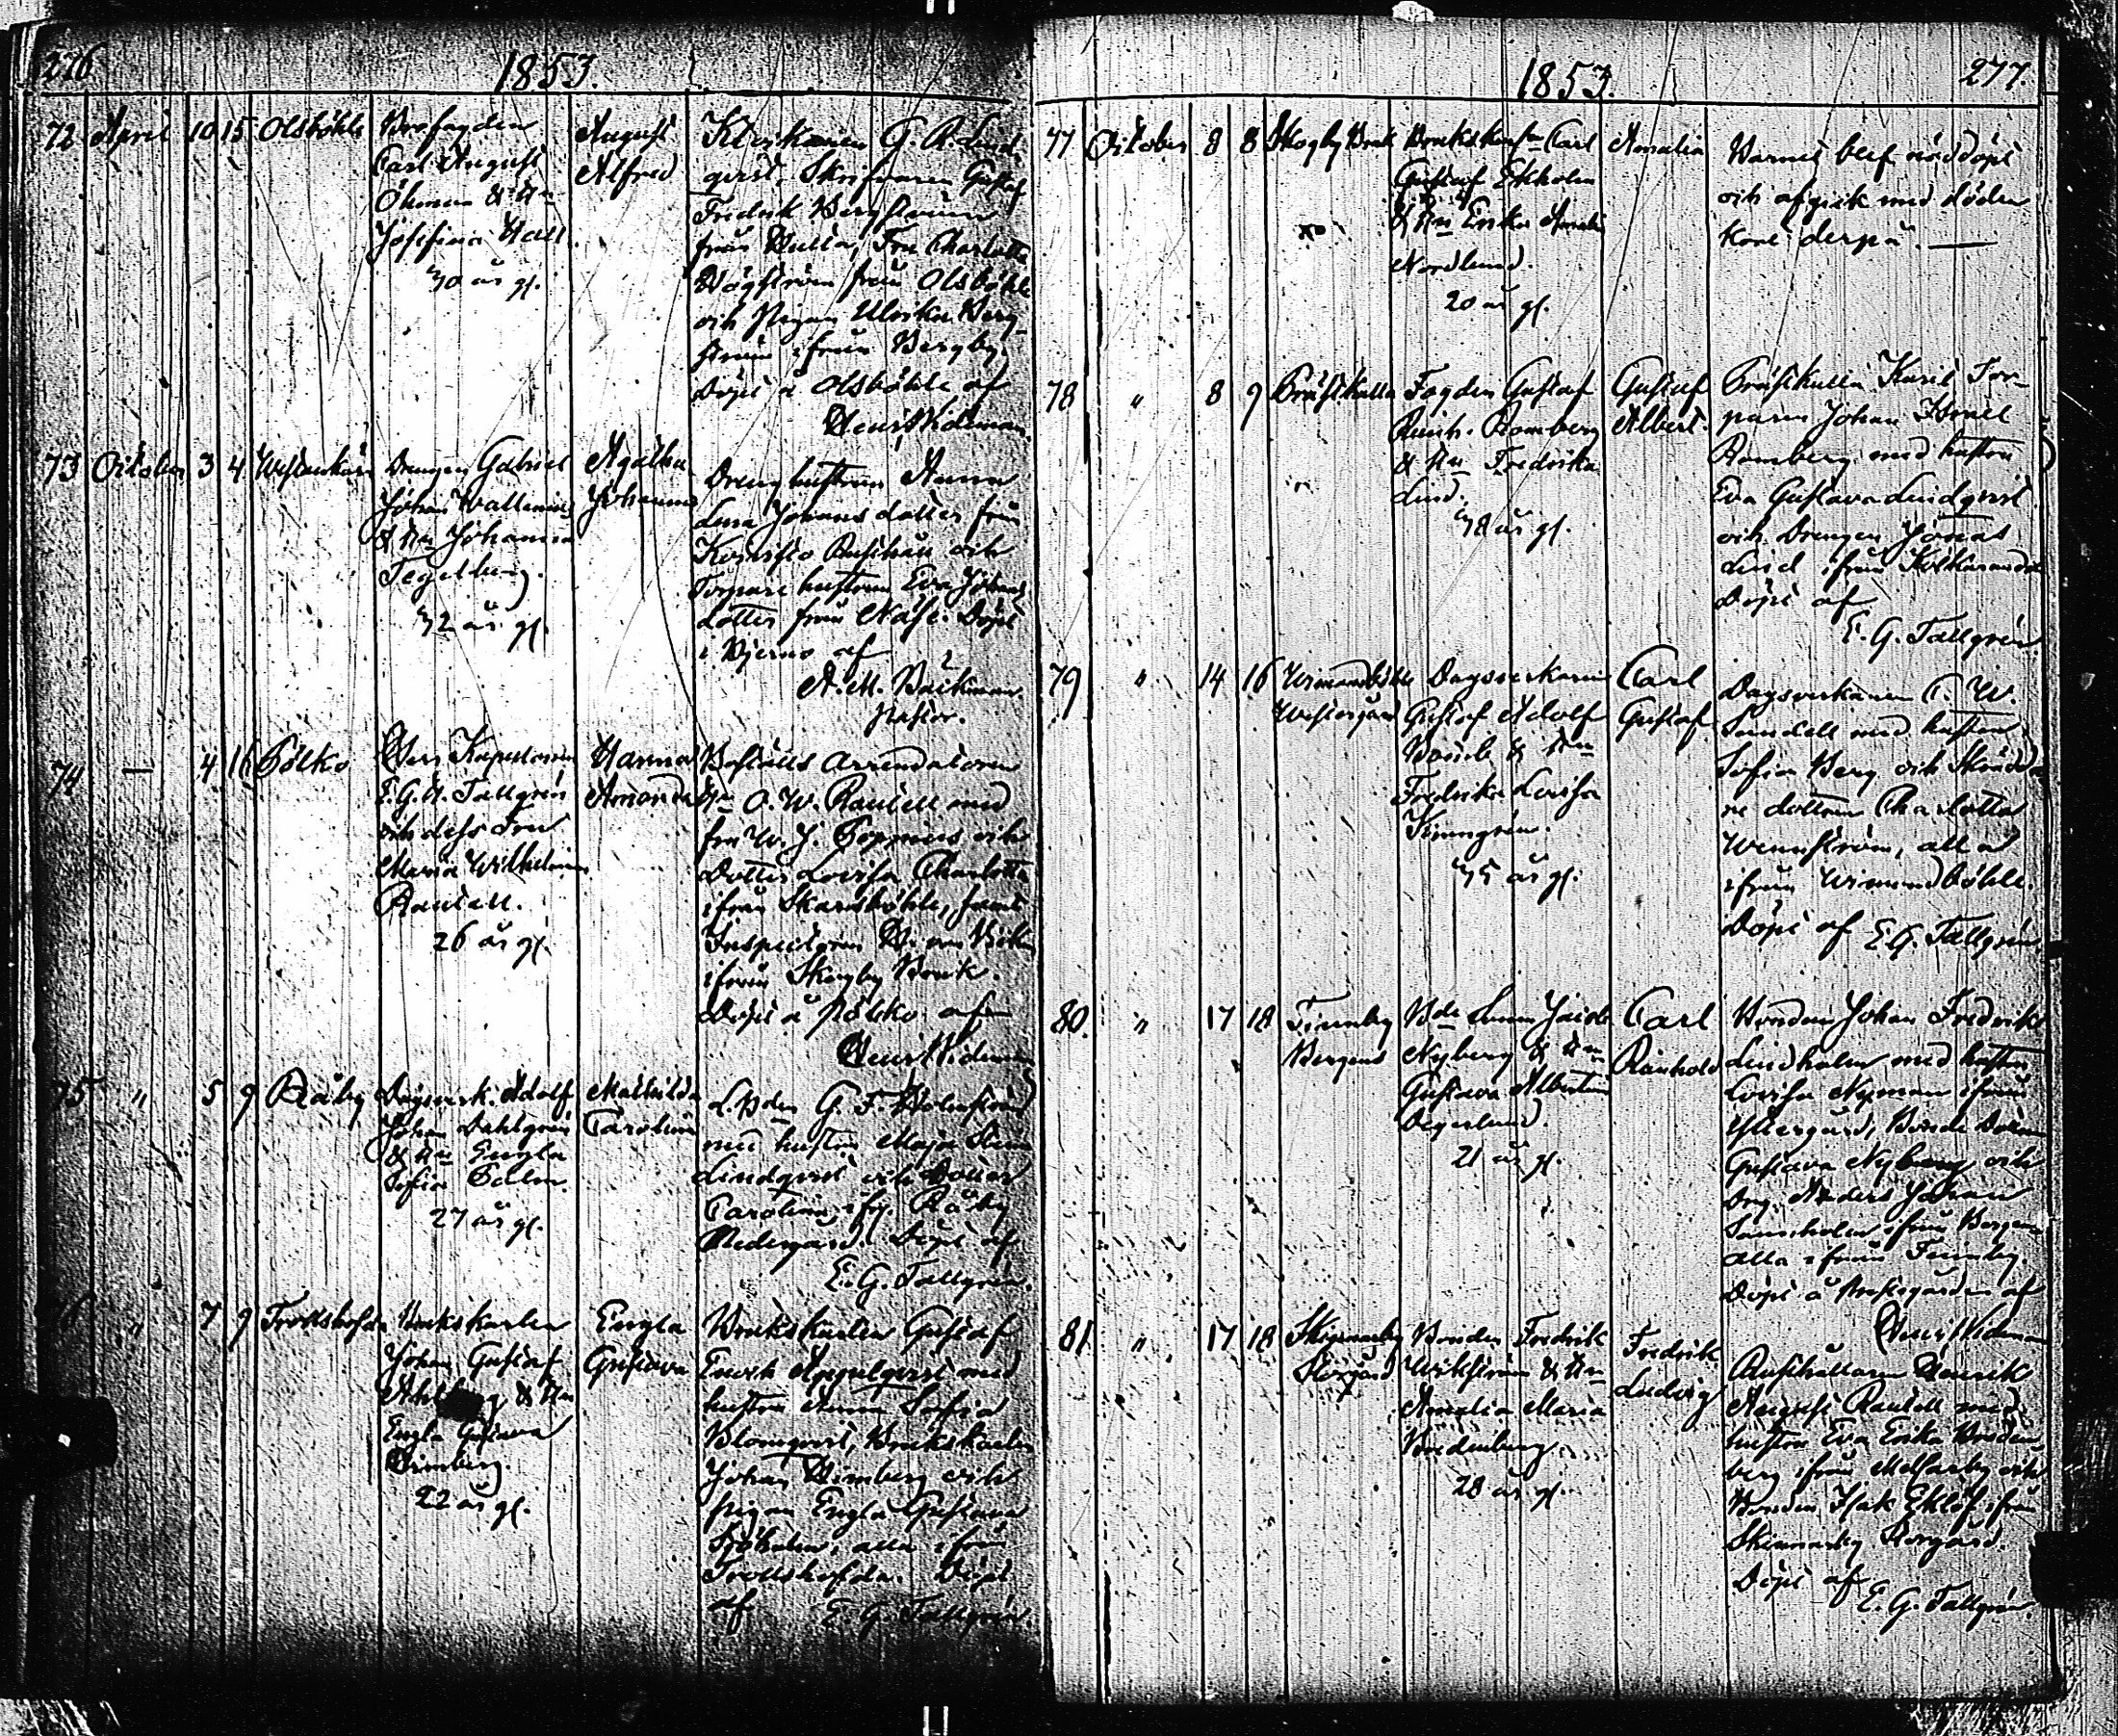 276
1853.
72 April 10 15 Olsböhle
Carl August
Öhman & Hu
Josefina Hall
30 år gl.
August
Alfred
Klockaren G. A. Lind-
qvist, Skrifvaren Gustaf
Fredrik Bergström
från Fru Charlotta
från Olsböhle
och Pigan Ulrika Berg-
ström ifrån Bergby.
Döpt å Olsböhle af
Henr Wideman.
73 October 3 4
Drengen Gabriel
Johan Wallenius
& Hu Johanna
Tegelberg.
32 år gl.
Agatha
Johanna
Dreng hustrun Anna
Lena Johans dotter från
och
Torpare hustrun Eva Johans
dotter från Döpt
i Bjerno af
A. M. Backman.
Pastor.
74 — 4 16 Pölko
Herr Kapellanen
E. G. A. Tallgrén
och dess Fru
Maria Wilhelmina
Rautell.
26 år gl.
Hanna
Amanda
Boställs Arrendatoren
Hr O. W. Rautell med
fru W. J. Poppius och
Dotter Lovisa Charlotta
ifrån Skarsböhle, samt
Inspectoren
ifrån Skogby Bruk.
Döpt å Pölko af
Henr Wideman
75 " 5 9 Råby
Dagsverk. Adolf
Johan Dahlgrén
& Hu Engla
Sofia Palm.
27 år gl.
Mathilda
Carolina
G. F. Holmström
med hustru Maja Stina
Lindqvist och Dotter
Carolina, ifr. Råby
Nedergård. Döpt af
E. G. Tallgrén.
76 " 7 9 Trotshofda
Brukskarlen
Johan Gustaf
& Hu
Engla Gustava
Dimberg.
22 år gl.
Engla
Gustava
Brukskarlen Gustaf
Enock Appelqvist med
hustru Anna Sofia
Blomqvist, Brukskarlen
Johan Dimberg och
pigan Engla Gustava
Sjöholm, alla ifrån
Trotshofda. Döpt
af E. G. Tallgrén
1853.
277.
77 October 8 8 Skogby Bruk
Bruksk. Carl
Gustaf Ekholm
& Hu Erika Amalia
Nordlund.
20 år gl.
Amalia
Barnet blef nöddöpt
och afgick med döden
kort derpå. —
78 " 8 9 Prästkulla
Fogden Gustaf
Reinh. Romberg
& Hu Fredrika
Lind.
38 år gl.
Gustaf
Albert.
Prästkulla Karis Tor-
paren Johan Israel
Romberg med hustru
Eva Gustava Lindqvist
och Drengen Jonas
Lind ifrån
Döpt af
E. G. Tallgrén
79 " 14 16 Wimonböhle
Westergård
Dagsverkaren
Gustaf Adolf
& Hu
Fredrika Lovisa
35 år gl.
Carl
Gustaf
Dagsverkaren C. W.
Sundell med hustru
Sofia Berg och Skrädda-
re dottern Charlotta
Wennström, alla
ifrån Wimonböhle.
Döpt af E. G. Tallgrén
80. " 17 18 Finnby
Bergans
Bde Sonen Jacob
Nyberg & Hu
Gustava Albertina
Degerlund.
21 år gl.
Carl
Reinhold
Bonden Johan Fredrik
Lindholm med hustru
Lovisa Nyman ifrån
Yttergård, Bonde Dottren
Gustava Nyberg och
Drg. Anders Johan
ifrån Bergans
alla ifrån Finnby.
Döpt å Prestgården af
Henr Wideman
81 " 17 18 Skinnarby
Storgård
Bonden Fredrik
Wikström & Hu
Amalia Maria
Bredenberg.
28 år gl.
Fredrik
Ludvig
Rusthållaren Henrik
August Rautell med
hustru Eva Erika Breden-
berg ifrån och
Bonden Isak Eklöf ifrån
Skinnarby Storgård.
Döpt af
E. G. Tallgrén.